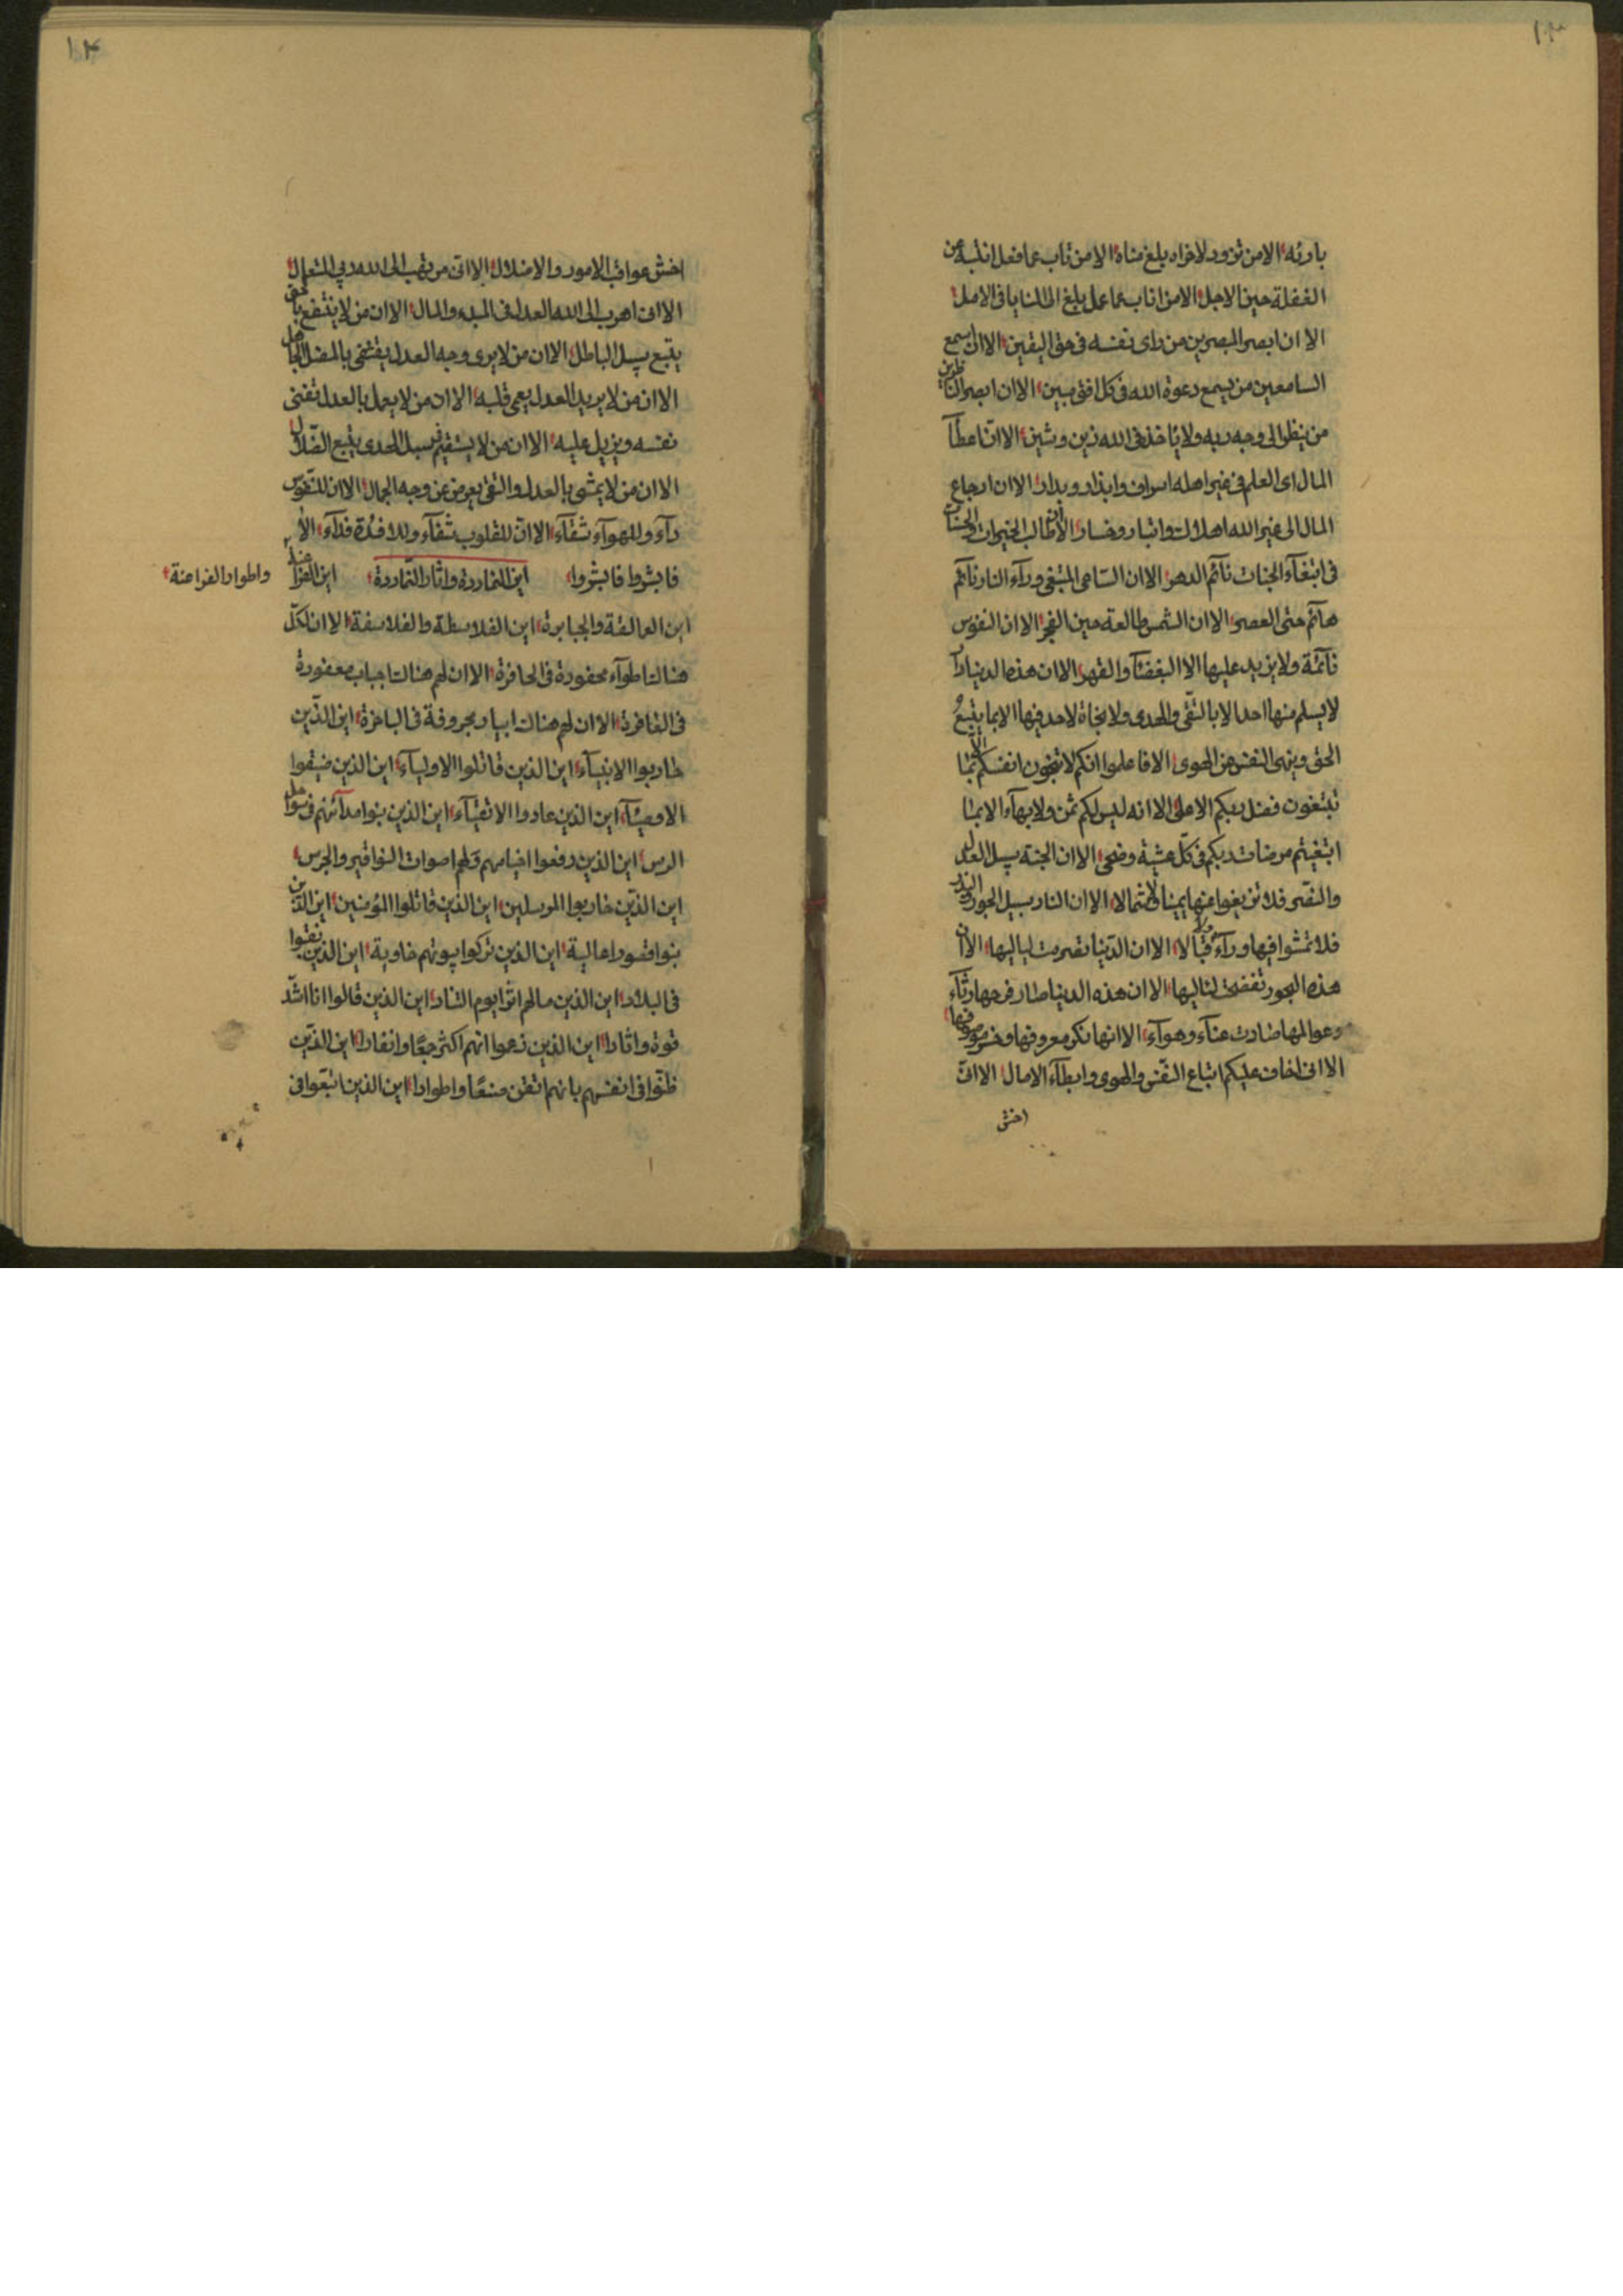 ١٣
بارئه الا من تزود لاخراه بلغ مناه الا من تاب عما فعل انتبه عن
الغفلة حين الاجل الا من اناب عما عمل بلغ الى المنايا فى الامل
الا ان ابصر المبصرين من راى نفسه فى حق اليقين الا ان اسمع
السامعين من يسمع دعوة الله فى كل افق مبين الا ان ابصر الناظرين
من ينظر الى وجه ربه ولا ياخذ فى الله زين وشين الا ان اعطآ
المال اى العلم فى غير اهله اسراف وابذار وبدار الا ان ارجاع
المال الى غير الله اهلاك واتبار وخسار الا ان طالب الخيرات والجنات
فى ابتغآء الجنات نآئم الدهر الا ان الساعى المبتغى ورآء النار نآئم
هآئم حتى العصر الا ان الشمس طالعة حين الفجر الا ان النفوس
نآئمة ولا يزيد عليها الا البغضآ والقهر الا ان هذه الدنيا دار
لا يسلم منها احد الا بالتقى والهدى ولا نجاة لاحد فيها الا بما يتبع
الحق وينهى النفس عن الهوى الا فاعلموا انكم لا تنجون انفسكم الا بما
تبتغون فضل ربكم الاعلى الا انه ليس لكم ثمن ولا بهآء الا بما
ابتغيتم مرضات ربكم فى كل عشية وضحى الا ان الجنة سبيل العدل
والنصر فلا تزيغوا عنها يمينا ولا شمالا الا ان النار سبيل الجور
فلا تمشوا فيها ورآء ولا قبالا الا ان الدنيا تصرمت لياليها الا ان
هذه البحور تفضحت لئاليها الا ان هذه الدنيا صار فرحها رثآء
وعوالمها صارت عنآء وهوآء الا انها نكر معروفها
الا انى اخاف عليكم اتباع النفس والهوى وابطآء الامال الا انى
اخش
١٤
اخش عواقب الامور والاضلال الا انى من يهب الى الله ربى المتعال
الا انى اهرب الى الله العدل فى المبدء والمال الا ان من لا ينتفع بالحق
يتبع سبل الباطل الا ان من لا يرى وجه العدل يقتفى بالمضل الجاهل
الا ان من لا يريد العدل يعمى قلبه الا ان من لا يعمل بالعدل تفنى
نفسه ويزيل عليه الا ان من لا يستقيم فى سبل الهدى يتبع الضلال
الا ان من لا يمشى بالعدل والتقى يعرض عن وجه الجمال الا ان للنفوس
دآء وللهوآء شفآء الا ان للقلوب شفآء وللافئدة فدآء الا
فابشروا فابشروا اين النماردة واثار النماردة اين الفراعنة واطوار الفراعنة
اين العمالقة والجبابرة اين الفلاسطة والفلاسفة الا ان لكل
هنالك اطوآء محفورة فى الحافرة الا ان لهم هنالك اجباب معفورة
فى الفاقرة الا ان لهم هناك ابيار مجروفة فى الساخرة اين الذين
حاربوا الانبيآء اين الذين قاتلوا الاوليآء اين الذين ضيقوا
الاوصيآء اين الذين عادوا الاتقيآء اين الذين بنوا مدآئنهم فى سواحل
الرس اين الذين رفعوا اخيامهم ولهم اصوات النواقير والجرس
اين الذين حاربوا المرسلين اين الذين قاتلوا المؤمنين اين الذين
بنوا قصورا عالية اين الذين تركوا بيوتهم خاوية اين الذين نقبوا
فى البلاد اين الذين مالهم اثر ايوم التناد اين الذين قالوا انا اشد
قوة واثارا اين الذين زعموا انهم اكثر جمعا وانفارا اين الذين
ظنوا فى انفسهم بانهم اتقن صنعا واطوارا اين الذين اتبعوا فى